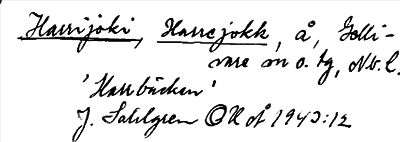 Harrijoki, Harrejokk, å, Gälli-
vare sn o. tg, Nb. l.
'Harrbäcken'
J. Sahlgren OUÅ 1943:12